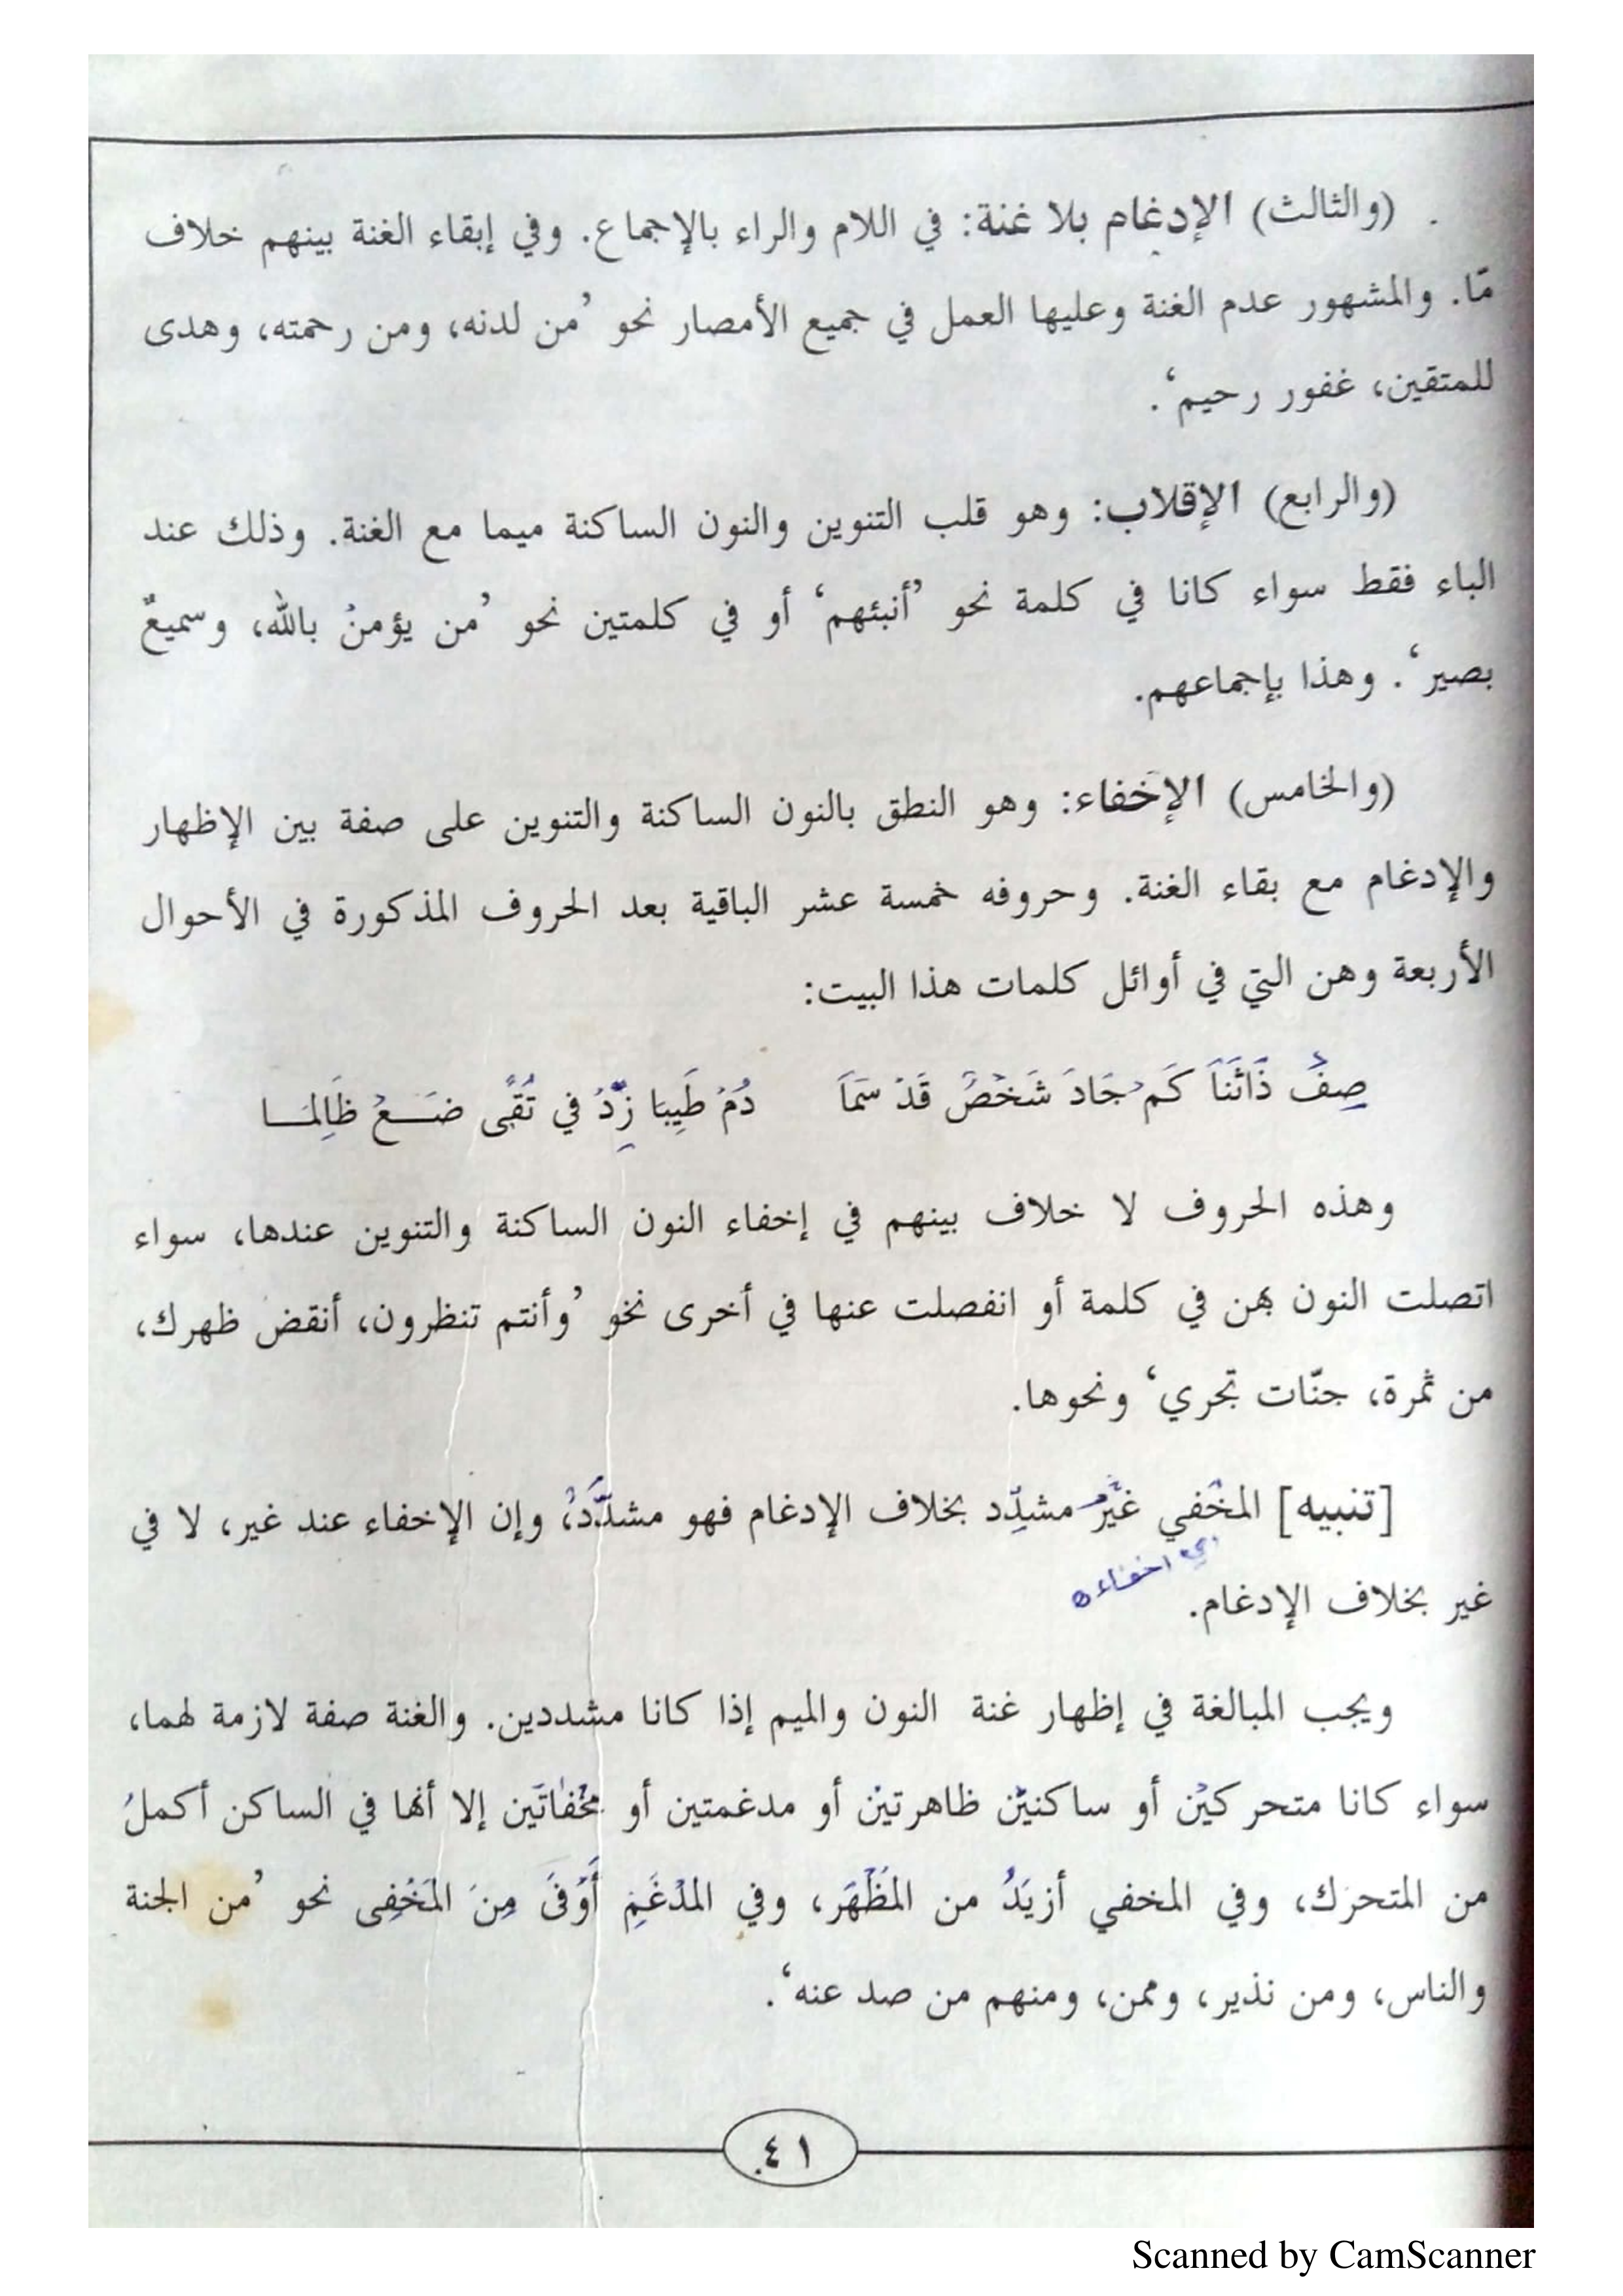 (والثالث) الإدغام بلا غنة: في اللام والراء بالإجماع. وفي إبقاء الغنة بينهم خلاف
مّا. والمشهور عدم الغنة وعليها العمل في جميع الأمصار نحو ’من لدنه، ومن رحمته، وهدى
للمتقين، غفور رحيم‘.
(والرابع) الإقلاب: وهو قلب التنوين والنون الساكنة ميما مع الغنة. وذلك عند
الباء فقط سواء كانا في كلمة نحو ’أنبئهم‘ أو في كلمتين نحو ’من يؤمنْ بالله، وسميعٌ
بصير‘. وهذا بإجماعهم.
(والخامس) الإخفاء: وهو النطق بالنون الساكنة والتنوين على صفة بين الإظهار
والإدغام مع بقاء الغنة. وحروفه خمسة عشر الباقية بعد الحروف المذكورة في الأحوال
الأربعة وهن التي في أوائل كلمات هذا البيت:
صِفْ ذَاثَنَاَ كَمْ جَادَ شَخْصٌ قَدْ سَمَاَ دُمْ طَيِبَا زِدْ في تُقًى ضَعْ ظَالِمَا
وهذه الحروف لا خلاف بينهم في إخفاء النون الساكنة والتنوين عندها، سواء
اتصلت النون بهن في كلمة أو انفصلت عنها في أخرى نخو ’وأنتم تنظرون، أنقض ظهرك،
من ثمرة، جنّات تجري‘ ونحوها.
[تنبيه] المخْفي غيْر مشدِّد بخلاف الإدغام فهو مشدَّدٌ، وإن الإخفاء عند غير، لا في
اي اخفاء
غير بخلاف الإدغام.
ويجب المبالغة في إظهار غنة النون والميم إذا كانا مشددين. والغنة صفة لازمة لهما،
سواء كانا متحركيْن أو ساكنيْن ظاهرتيْن أو مدغمتين أو مخْفاتَين إلا أنها في الساكن أكملُ
من المتحرك، وفي المخفي أزيَدُ من المَظْهَر، وفي المدْغَمِ أَوْفَى مِنَ المَخْفِى نحو ’من الجنة
والناس، ومن نذير، وممن، ومنهم من صد عنه‘.
٤١
Scanned by CamScanner